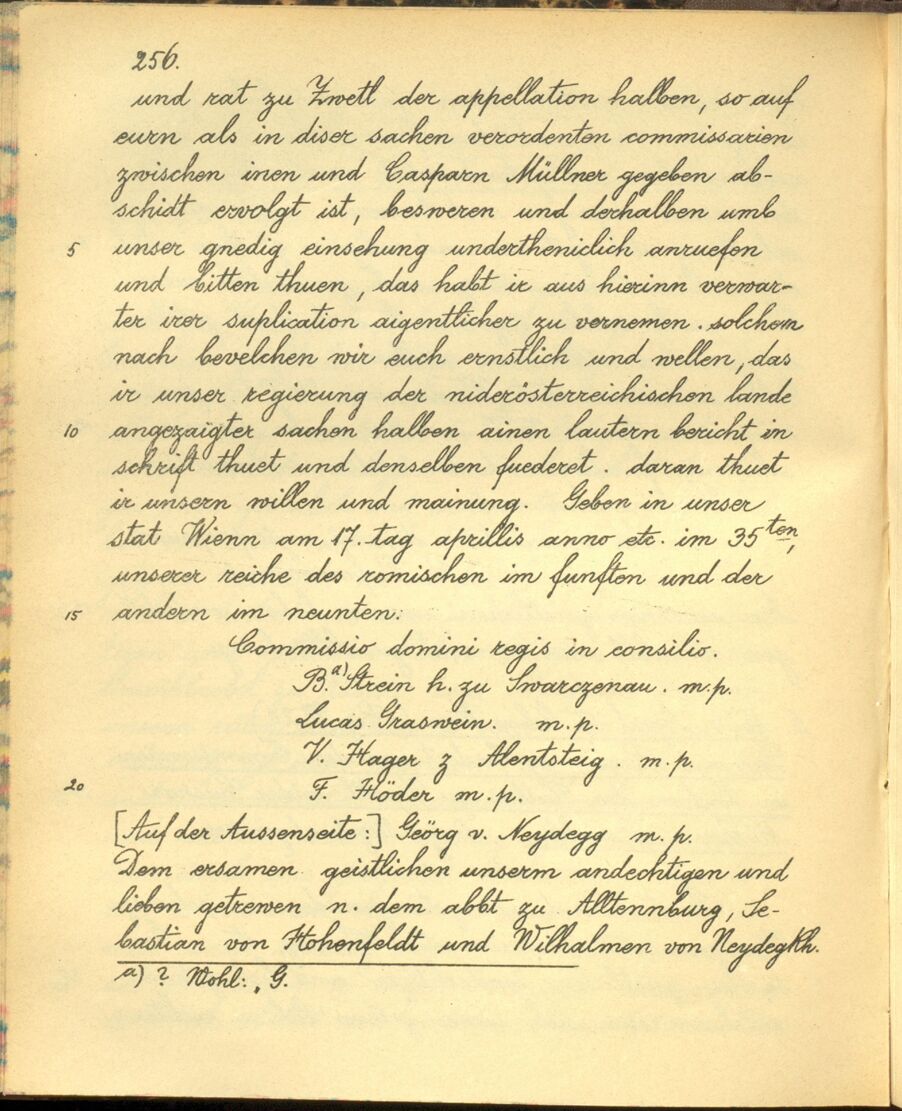 256.
und rat zu Zwetl der appellation halben, so auf
eurn als in diser sachen verordenten commissarien
zwischen inen und Casparn Müllner gegeben ab-
schidt ervolgt ist, besweren und derhalben umb
5 unser gnedig einsehung undertheniclich anruefen
und bitten thuen, das habt ir aus hierinn verwar-
ter irer suplication aigentlicher zu vernemen. solchem
nach bevelchen wir euch ernstlich und wellen, das
ir unser regierung der niderösterreichischen lande
10 angezaigter sachen halben ainen lautern bericht in
schrift thuet und denselben fuederet. daran thuet
ir unsern willen und mainung. Geben in unser
stat Wienn am 17. tag aprillis anno etc. im 35ten,
unserer reiche des romischen im funften und der
15 andern im neunten.
Commissio domini regis in consilio.
B.a) Strein h. zu Swarczenau. m.p.
Lucas Graswein. m.p.
V. Hager z Alentsteig. m.p.
20 F. Höder m.p.
[Auf der Aussenseite:] Geörg v. Neydegg m.p.
Dem ersamen geistlichen unserm andechtigen und
lieben getrewen n. dem abbt zu Alltennburg, Se-
bastian von Hohenfeldt und Wilhalmen von Neydegkh.
a) ? Wohl: „G.